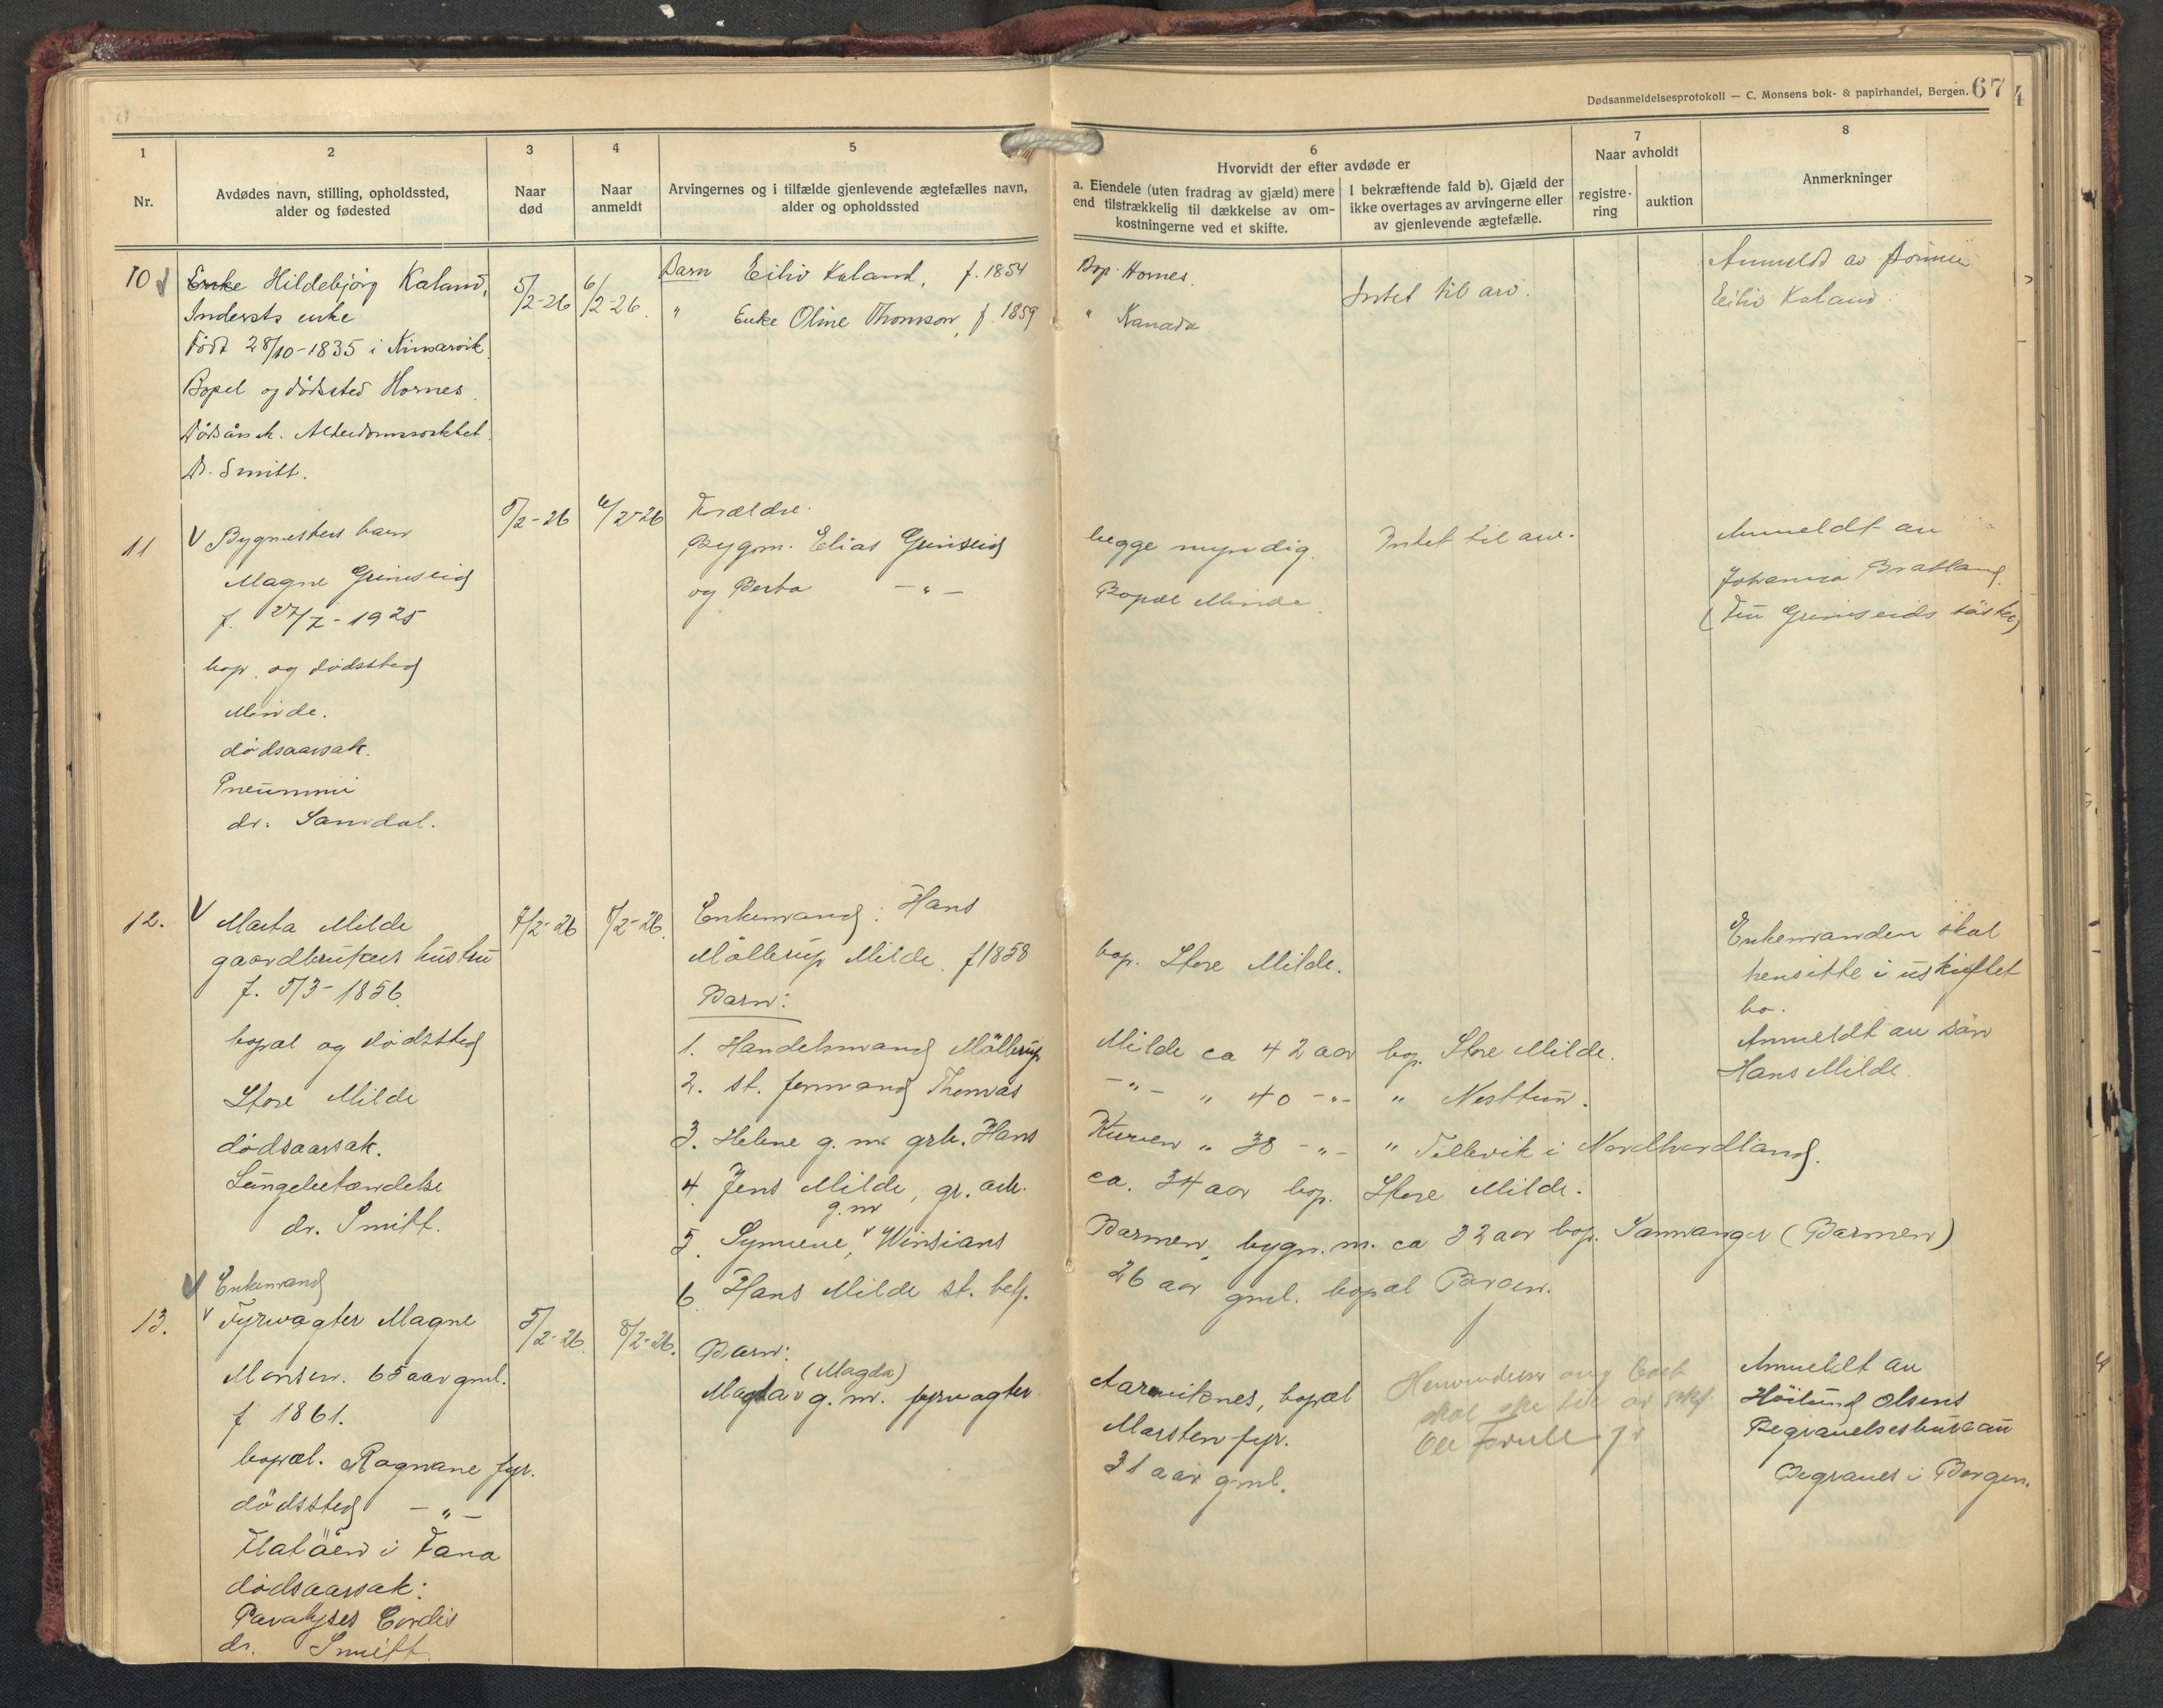 Dødsanmeldelsesprotokoll — C. Monsens bok- & papirhandel, Bergen. 67
1
Nr.
2
Avdødes navn, stilling, opholdssted,
alder og fødested
3
Naar
død
4
Naar
anmeldt
5
Arvingernes og i tilfælde gjenlevende ægtefælles navn,
alder og opholdssted
6
Hvorvidt der efter avdøde er
a. Eiendele (uten fradrag av gjæld) mere
end tilstrækkelig til dækkelse av om-
kostningerne ved et skifte.
I bekræftende fald b). Gjæld der
ikke overtages av arvingerne eller
av gjenlevende ægtefælle.
7
Naar avholdt
registre-
ring
auktion
8
Anmerkninger
10
Enke Hildebjörg Kaland,
Indersts enke
Född 28/10-1835 i Kinsarvik
Bopel og dödssted Hornes.
Dödsårsak. Alderdomssvakhet.
Dr. Smitt.
5/2-26
6/2-26.
Barn Eiliv Kaland, f. 1854
" Enke Oline Thomson, f. 1859
Bop. Hornes.
" Kanada
Intet til arv.
Anmeldt av sönnen
Eiliv Kaland.
11
V Bygmesters barn
Magne Grimseid
f. 27/7-1925
bop. og dödssted
Minde.
dödsaarsak.
Pneumoni
dr. Samdal.
5/2-26
6/2-26
Forældre.
Bygm. Elias Grimseid
og Berta — " —
begge myndig.
Bopæl Minde.
Intet til arv.
Anmeldt av
Johanna Bratland.
(Fru Grimseids söster)
12.
V Marta Milde
gaardbrukers hustru
f. 5/3-1856.
bopæl og dödssted
Store Milde
dödsaarsak.
Lungebetændelse
dr. Smitt.
7/2-26
8/2-26.
Enkemand: Hans
Möllerup Milde. f 1858
Barn:
1. Handelsmand Möllerup
2. st. formand Thomas
3. Helene g. m. grb. Hans
4. Jens Milde, gr. arb.
g.m.
5. Symene, Winsians
6. Hans Milde st. betj.
bop. Store Milde.
Milde ca 42 aar bop. Store Milde.
— " — " 40 — " — " Nesttun.
Kurven " 38 — " — " Tellevik i Nordhordland.
ca. 34 aar bop. Store Milde.
Barmen, bygn. m. ca 32 aar bop. Samnanger (Barmen)
26 aar gml. bopæl Bergen.
Enkemanden skal
hensitte i uskiftet
bo.
Anmeldt av sön
Hans Milde.
13.
V Enkemand
Fyrvagter Magne
Monsen. 65 aar gml.
f 1861.
bopæl. Rognane fyr.
dödssted — " —
Flatöen i Fana
dödsaarsak:
Paralyses Cordis
dr. Smitt
5/2-26
8/2-26.
Barn:
(Magda)
Magda g. m. fyrvagter
Aarviknes, bopæl
Marsten fyr.
31 aar gml.
Henvendelser ang boet
skal ske til
Ole
Anmeldt av
Höilund Olsens
Begravelsesbureau
Begraves i Bergen.